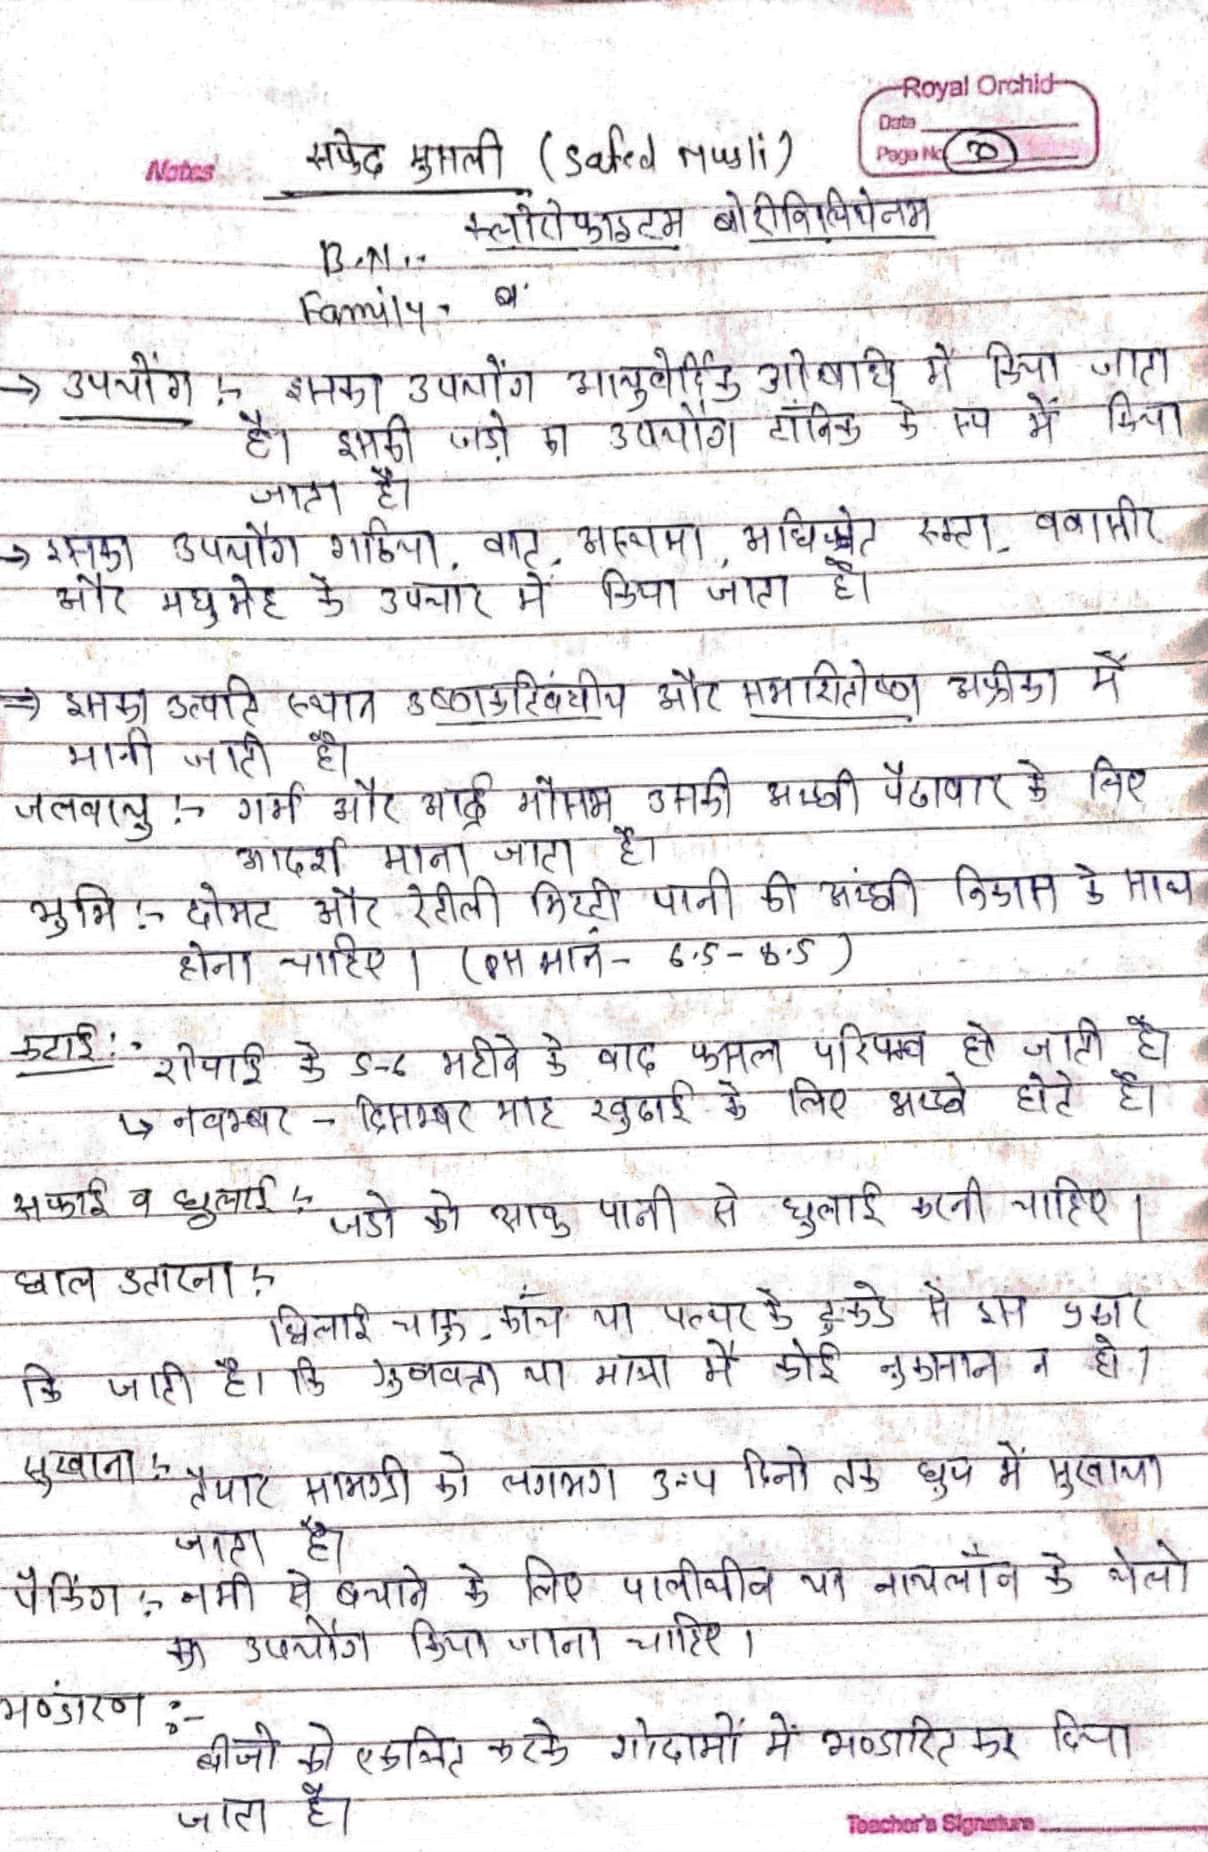 Royal Orchid
Date
Page No 70
Notes
सफेद मुसली (Safed Musli)
क्लोरोफाइटम बोरीविलियेनम
B.N.:-
Family -
→ उपयोग :- इसका उपयोग आयुर्वेदिक औषधि में किया जाता
है। इसकी जड़ो का उपयोग टॉनिक के रूप में किया
जाता है।
→ इसका उपयोग गठिया, वात, अस्थमा, अधिश्वेत रक्तता, बवासीर
और मधुमेह के उपचार में किया जाता है।
→ इसका उत्पति स्थान उष्णकटिबंधीय और समशितोष्ण अफ्रीका में
मानी जाती है।
जलवायु :- गर्म और आर्द्र मौसम उसकी अच्छी पैदावार के लिए
आदर्श माना जाता है।
भुमि :- दोमट और रेतीली मिट्टी पानी की अच्छी निकास के साथ
होना चाहिए। (PH मान - 6.5 - 8.5)
कटाई :- रोपाई के 5-6 महीने के बाद फसल परिपक्व हो जाती है।
↳ नवम्बर - दिसम्बर माह खुदाई के लिए अच्छे होते है।
सफाई व धुलाई :- जडो को साफ पानी से धुलाई करनी चाहिए।
छाल उतारना :-
छिलाई चाकु, काँच या पत्थर के टुकडे से इस प्रकार
कि जाती है। कि गुणवत्ता या मात्रा में कोई नुकसान न हो।
सुखाना :- तैयार सामग्री को लगभग 3-4 दिनो तक धुप में सुखाया
जाता है।
पैकिंग :- नमी से बचाने के लिए पालीथीन या नायलॉन के थेलो
का उपयोग किया जाना चाहिए।
भण्डारण :-
बीजो को एकत्रित करके गोदामों में भण्डारित कर दिया
जाता है।
Teacher's Signature